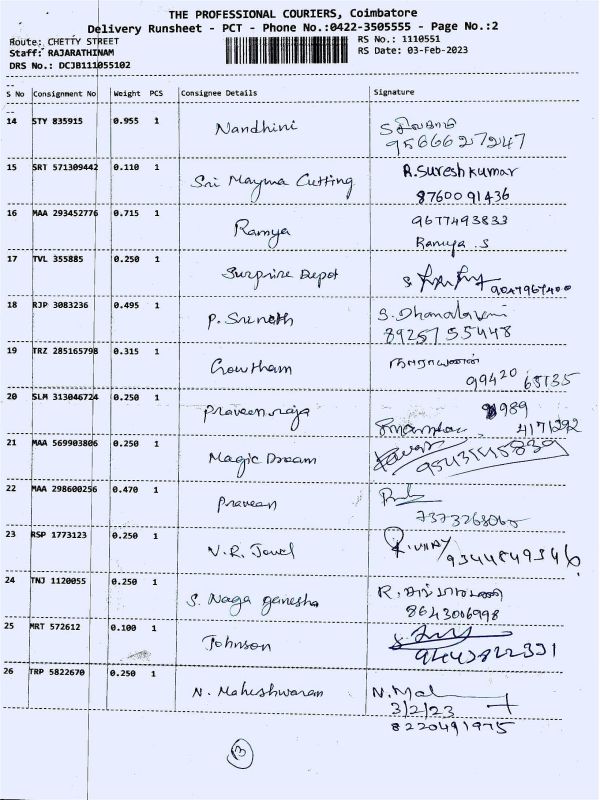 THE PROFESSIONAL COURIERS, Coimbatore
Delivery Runsheet - PCT - Phone No.:0422-3505555 - Page No.:2
Route: CHETTY STREET
RS No.: 1110551
Staff: RAJARATHINAM
RS Date: 03-Feb-2023
DRS No.: DCJB111055102
S No Consignment No Weight PCS Consignee Details Signature
14 STY 835915 0.955 1 Nandhini
9566627247
15 SRT 571309442 0.110 1 Sri Mayma Cutting R.Sureshkumar
8760091436
16 MAA 293452776 0.715 1 Ramya 9677493833
Ramya.S
17 TVL 355885 0.250 1 Surprise Depot
9047967400
18 RJP 3083236 0.495 1 P. S. Dhanalaxmi
8925755448
19 TRZ 285165798 0.315 1 Gowtham நாராயணன்
99420 65135
20 SLM 313046724 0.250 1 Praveen raja 989
4171292
21 MAA 569903806 0.250 1 Magic Dream
22 MAA 298600256 0.470 1 Praveen
23 RSP 1773123 0.250 1 V.R. R.VIJAY
9344849346
24 TNJ 1120055 0.250 1 S. Naga ganesha R.
8643006998
25 MRT 572612 0.100 1 Johnson
26 TRP 5822670 0.250 1 N. Maheshwaram N.Mah
3/2/23
8220491975
13